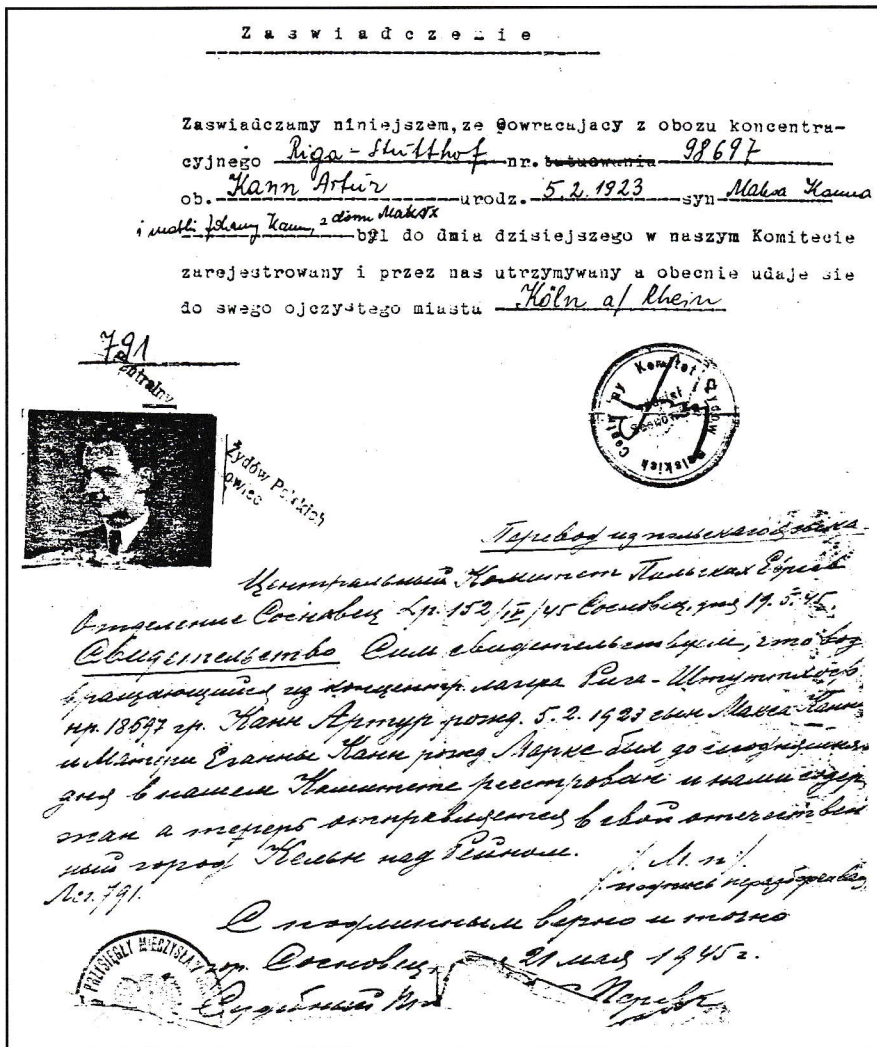 Zaswiadczenie
Zaswiadczamy niniejszem, ze powracajacy z obozu koncentra-
cyjnego Riga-Stutthof nr. tatuowania 98697
ob. Kann Artur urodz. 5.2.1923 syn Maksa Kanna
i matki Kann, z domu
był do dnia dzisiejszego w naszym Komitecie
zarejestrowany i przez nas utrzymywany a obecnie udaje sie
do swego ojczystego miasta Köln a/ Rhein
791
Centralny
Żydów Polskich
owiec
Centralny Komitet Żydów Polskich
Перевод из польскаго языка
Центральный Комитет Польских Евреев
Отделение Сосновец Lp. 152/IV/45 Сосновец, дня 19.5.45.
Свидетельство Сим свидетельствуем, что воз
вращающийся из концентр. лагера Рига-Штуттгоф
нр. 18697 гр. Канн Артур рожд. 5.2.1923 сын Макса Канн
и Матери Еганны Канн рожд Маркс был до сегодняшняго
дня в нашем Комитете реестрован и нами содер
жан а теперь отправляется в свой отечествен
ный город Кельн над Рейном.
791.
/М.п/
подпись неразборчива
С подлинным верно и точно
гор. Сосновец, 21 мая 1945 г.
PRZYSIĘGŁY MIECZYSŁAW
Судебный